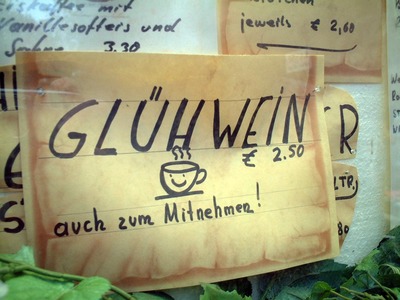 mit
Vanillesofters und
Sahne 3.30
jeweils € 2,60
GLÜHWEIN
€ 2.50
auch zum Mitnehmen!
R
LTR.
80